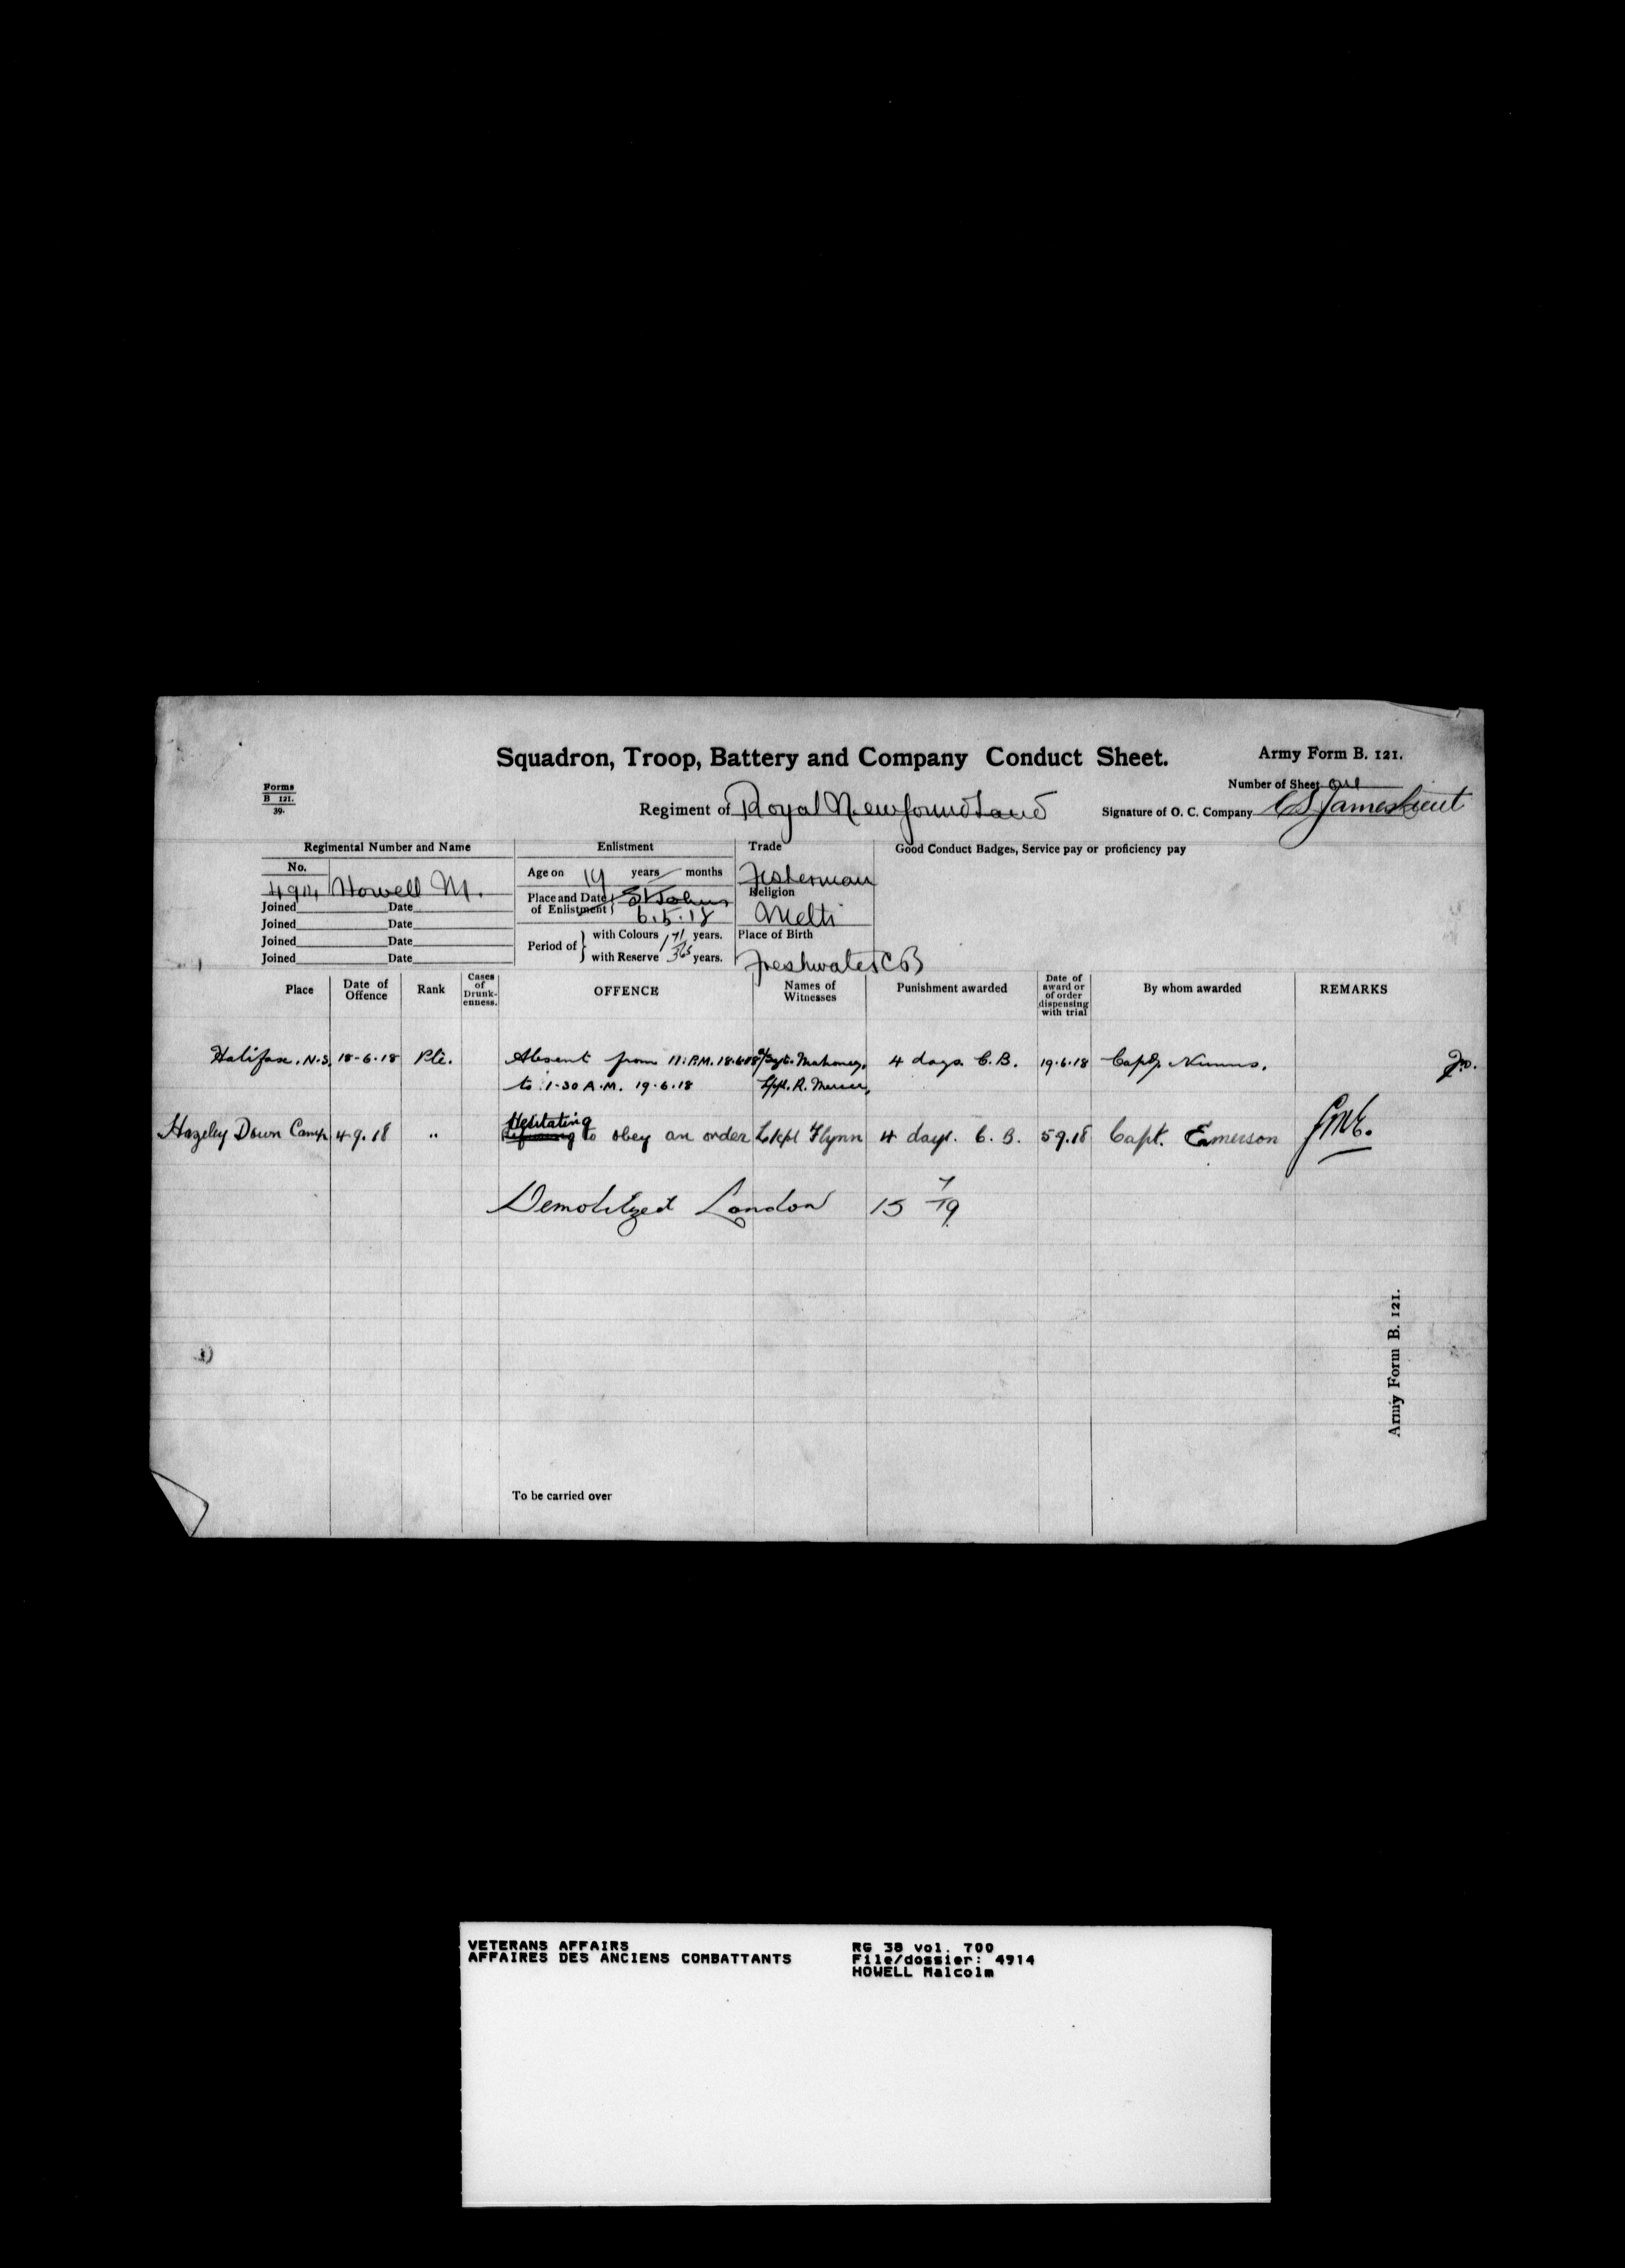 Squadron, Troop, Battery and Company Conduct Sheet.
Army Form B. 121.
Forms
B 121.
39.
Number of Sheet one
Regiment of Royal Newfoundland
Signature of O. C. Company CS James Lieut
Regimental Number and Name
Enlistment
Trade
Good Conduct Badges, Service pay or proficiency pay
No.
Age on 19 years months
Fisherman
4914 Howell M.
Religion
Joined Date
Place and Date of Enlistment St Johns
6.5.18
Methi
Joined Date
Joined Date
Period of with Colours 1 71 years.
Place of Birth
Joined Date
with Reserve 365 years.
Freshwater CB
Place
Date of Offence
Rank
Cases of Drunkenness.
OFFENCE
Names of Witnesses
Punishment awarded
Date of award or of order dispensing with trial
By whom awarded
REMARKS
Halifax. N.S. 18-6-18 Pte. Absent from 11. P.M. 18.6.18 a/Sgt. Mahoney, 4 days C.B. 19.6.18 Capt. Nunns.
to 1-30 A.M. 19.6.18 R. Mercer,
Hesitating
Hazeley Down Camp 4-9.18 " Refusing to obey an order L/cpl Flynn 4 days. C. B. 5 9.18 Capt. Emerson
Demobilized London 15 7/19
Army Form B. 121.
To be carried over
VETERANS AFFAIRS
AFFAIRES DES ANCIENS COMBATTANTS
RG 38 vol. 700
File/dossier: 4914
HOWELL Malcolm